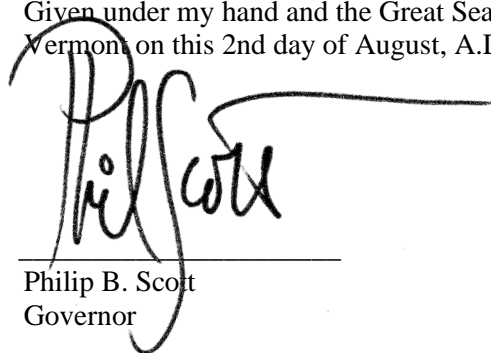 Given under my hand and the Great Sea
Vermont on this 2nd day of August, A.D
Phil Scott
Philip B. Scott
Governor